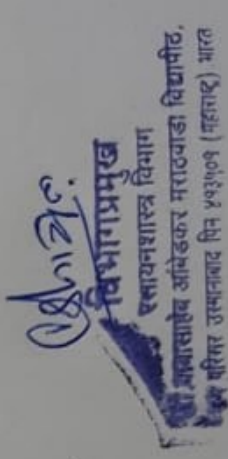 विभागप्रमुख
रसायनशास्त्र विभाग
बाबासाहेब आंबेडकर मराठवाडा विद्यापीठ,
परिसर उस्मानाबाद पिन ४१३५०१ (महाराष्ट्र) भारत